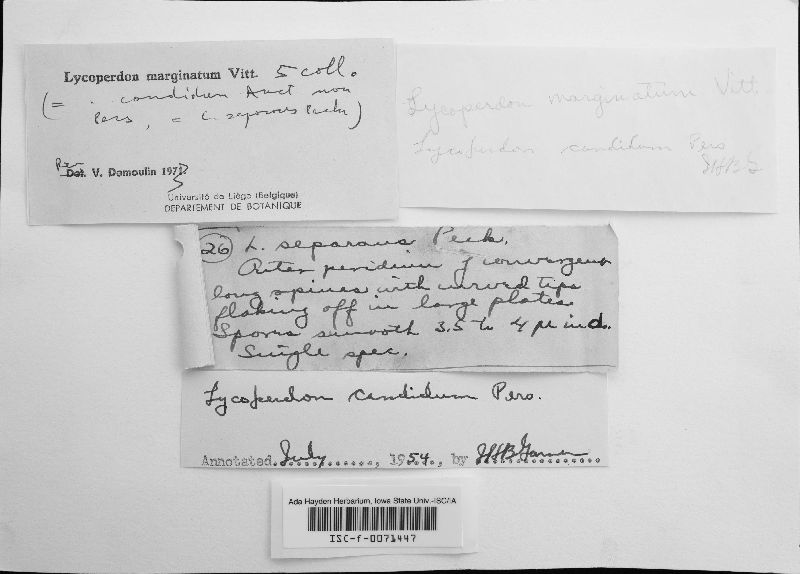 Lycoperdon marginatum Vitt. 5 coll.
(= . candidum Auct non
Pers, = L. separans Peck)
Det. V. Demoulin 197
Université de Liège (Belgique)
DEPARTEMENT DE BOTANIQUE
Lycoperdon marginatum Vitt.
Lycoperdon candidum Pers
26 L. separans Peck.
Outer peridium of convergent
long spines with curved tips
flaking off in large plates.
Spores smooth 3.5 to 4 µ in d.
Single spec.
Lycoperdon candidum Pers.
Annotated July, 1954, by HHB Garner
Ada Hayden Herbarium, Iowa State Univ.-ISC/IA
ISC-f-0071447